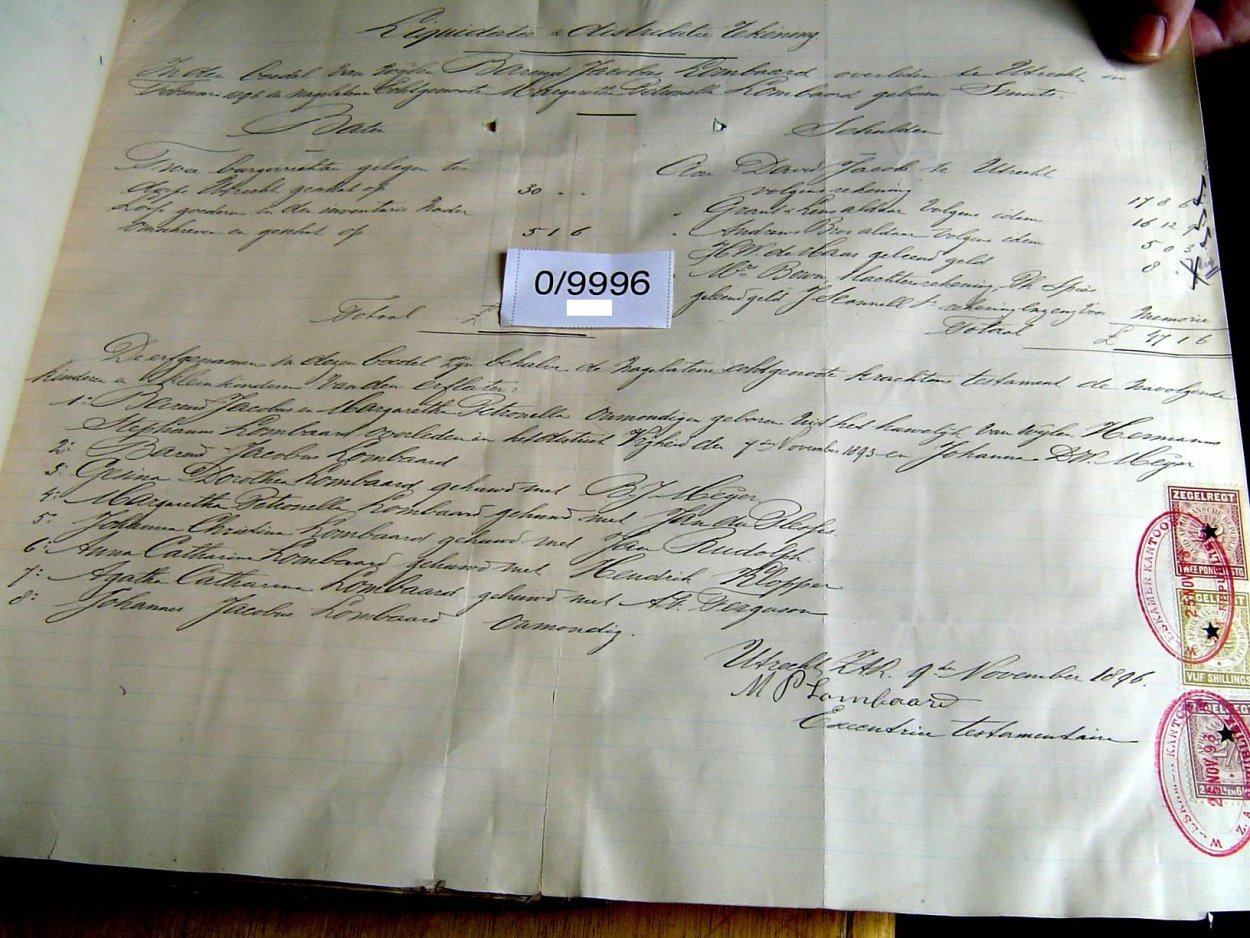 Liquidatie & distributie rekening
In den boedel van wijlen Barend Jacobus Lombaard overleden te Utrecht in
Februari 1896 en nagelatene Echtgenoote Margaretha Petronella Lombaard geboren Smit.
Baten
Schulden
Twee burgerrechten gelegen te
Utrecht geschat op 30 . .
Losse goederen in den inventaris nader
omschreven en geschat op 5 1 6
Aan David Jacob te Utrecht
volgens rekening 17 8 6
" Grant & aldaar volgens idem 16 12
" Andrews Bros aldaar volgens idem 5 0
" H W de Haas geleend geld 8
" Slachtersrekening,
geleend geld, rekening Memorie
Totaal £
Totaal £ 47 1 6
0/9996
De erfgenamen in dezen boedel zijn behalve de nagelatene echtgenoote krachtens testament de navolgende
kinderen en kleinkinderen van den erflater:
1: Barend Jacobus en Margaretha Petronella onmondigen geboren uit het huwelijk van wijlen Hermanus
Stephanus Lombaard overleden in het distrikt Vrijheid den 7de November 1893 en Johanna Meyer
2: Barend Jacobus Lombaard
3: Gesina Dorothea Lombaard gehuwd met B J Meyer
4: Margaretha Petronella Lombaard gehuwd met du Plessis
5: Johanna Christina Lombaard gehuwd met Jan Rudolph
6: Anna Catharina Lombaard gehuwd met Hendrik Klopper
7: Agatha Catharina Lombaard gehuwd met Ferguson
8: Johannes Jacobus Lombaard onmondig.
Utrecht ZAR. 9de November 1896.
M P Lombaard
Executrice testamentair
ZEGELREGT
TWEE POND
ZEGELREGT
VIJF SHILLINGS
ZEGELREGT
WEESKAMER KANTOOR
25 NOV 98